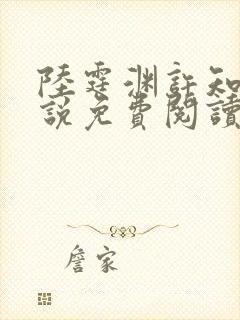 陸霆渊許知
說免費閱讀
詹家